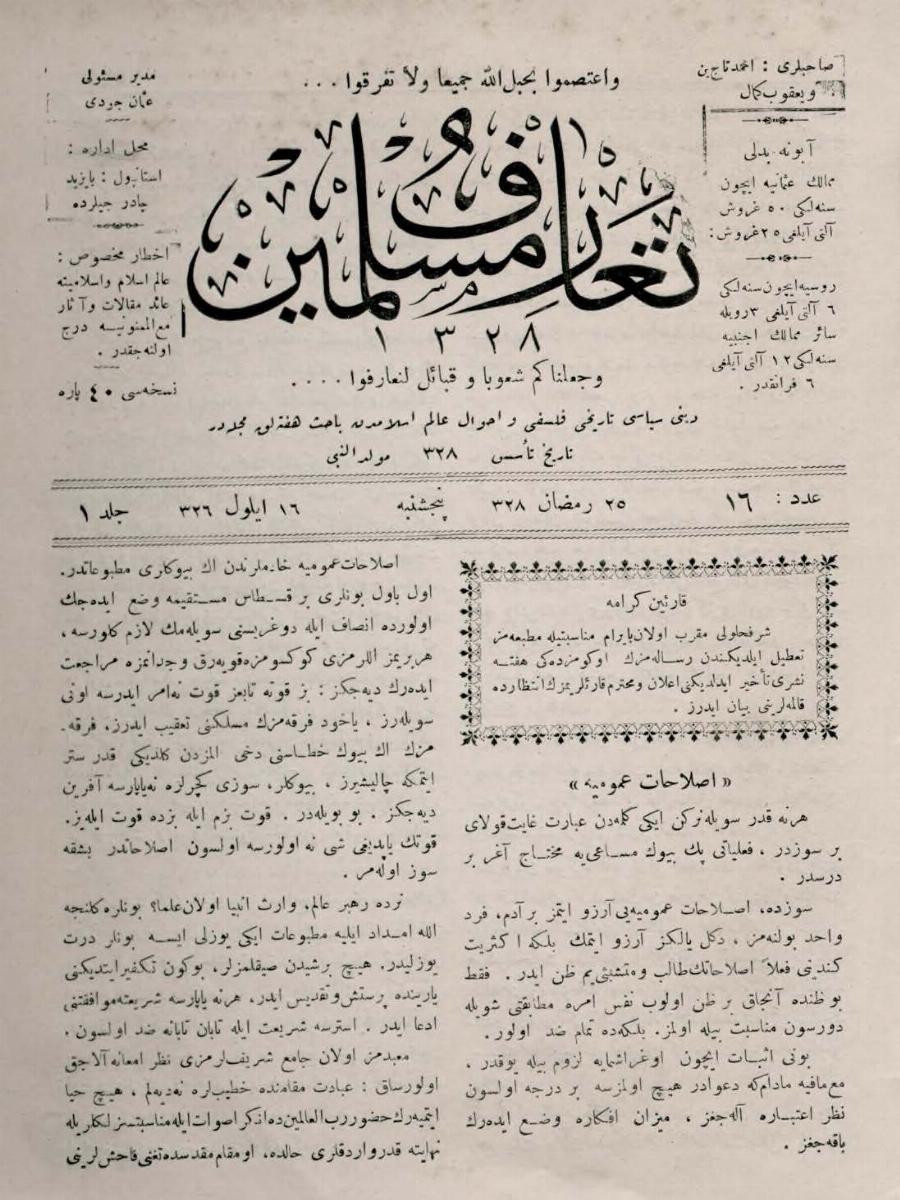 صاحبلری : احمد تاج‌الدین
و یعقوب کمال
آبونه بدلی
ممالك عثمانیه ایچون
سنه‌لكی ٥٠ غروش
آلتی آیلغی ٢٥ غروش :
روسیه ایچون سنه‌لكی
٦ آلتی آیلغی ٣ روبله
سائر ممالك اجنبیه
سنه‌لكی ١٢ آلتی آیلغی
٦ فرانقدر .
واعتصموا بحبل الله جمیعا ولا تفرقوا ...
تعارف مسلمین
١٣٢٨
وجعلناكم شعوبا و قبائل لتعارفوا ....
دینی سیاسی تاریخی فلسفی و احوال عالم اسلامدن باحث هفته‌لق مجله‌در
تاریخ تأسس ٣٢٨ مولد النبی
مدیر مسئولی
عثمان جودی
محل اداره :
استانبول : بایزید
چادر جیلرده
اخطار مخصوص :
عالم اسلام واسلامیته
عائد مقالات وآثار
مع الممنونیه درج
اولنه‌جقدر .
نسخه‌سی ٤٠ پاره
عدد : ١٦ ٢٥ رمضان ٣٢٨ پنجشنبه ١٦ ایلول ٣٢٦ جلد ١
قارئین كرامه
شرفحلولی مقرب اولان بایرام مناسبتیله مطبعه‌مز
تعطیل ایلدیكندن رساله‌مزك اوكومزده‌كی هفته
نشری تأخیر ایدلدیكنی اعلان ومحترم قارئلریمزك انتظارده
قالمه‌لرینی بیان ایدرز .
« اصلاحات عمومیه »
هرنه قدر سویله‌نركن ایكی كله‌دن عبارت غایت قولای
بر سوزدر ، فعلیاتی پك بیوك مساعی‌یه محتاج آغر بر
درسدر .
سوزده، اصلاحات عمومیه‌یی آرزو ایتمز بر آدم، فرد
واحد بولنه‌مز ، دكل یالكز آرزو ایتمك بلكه اكثریت
كندینی فعلاً اصلاحاتك طالب ومتشبثی‌یم ظن ایدر . فقط
بو ظنده آنجاق بر ظن اولوب نفس امره مطابقتی شویله
دورسون مناسبت بیله اولمز. بلكه‌ده تمام ضد اولور.
بونی اثبات ایچون اوغراشمایه لزوم بیله یوقدر .
مع‌مافیه مادام‌كه دعوادر هیچ اولمزسه بر درجه اولسون
نظر اعتباره آله‌جغز ، میزان افكاره وضع ایده‌رك
باقه‌جغز .
اصلاحات عمومیه خادملرندن اك بیوكلری مطبوعاتدر.
اول باول بونلری بر قسطاس مستقیمه وضع ایده‌جك
اولورده انصاف ایله دوغریسنی سویله‌مك لازم كلورسه ،
هربریمز اللرمزی كوكسومزه قویه‌رق وجدانمزه مراجعت
ایده‌رك دیه‌جكز : بز قوته تابعز قوت نه‌امر ایدرسه اونی
سویله‌رز ، یاخود فرقه‌مزك مسلكنی تعقیب ایدرز. فرقه‌-
مزك اك بیوك خطاسنی دخی المزدن كلدیكی قدر ستر
ایتمكه چالیشیرز ، بیوكلر، سوزی كچرلره نه‌یاپارسه آفرین
دیه‌جكز . بو بویله‌در . قوت بزم ایله بزده قوت ایله‌یز.
قوتك یاپدیغی شی نه اولورسه اولسون اصلاحاتدر بشقه
سوز اوله‌مز .
نرده رهبر عالم، وارث انبیا اولان علما؟ بونلره كلنجه
الله امداد ایلیه مطبوعات ایكی یوزلی ایسه بونلر درت
یوزلیدر. هیچ برشیدن صیقلمزلر، بوكون تكفیر ایتدیكنی
یارینده پرستش وتقدیس ایدر، هرنه یاپارسه شریعته موافقتنی
ادعا ایدر . استرسه شریعت ایله تابان تابانه ضد اولسون .
معبدمز اولان جامع شریفلرمزی نظر امعانه آلاجق
اولورساق : عبادت مقامنده خطیبلره نه‌دیه‌لم ، هیچ حیا
ایتمیه‌رك حضور رب العالمین‌ده انكر اصوات ایله مناسبتسزلكلریله
نهایته قدر واردقلری حالده، او مقام مقدسده تغنی فاحش لرینی